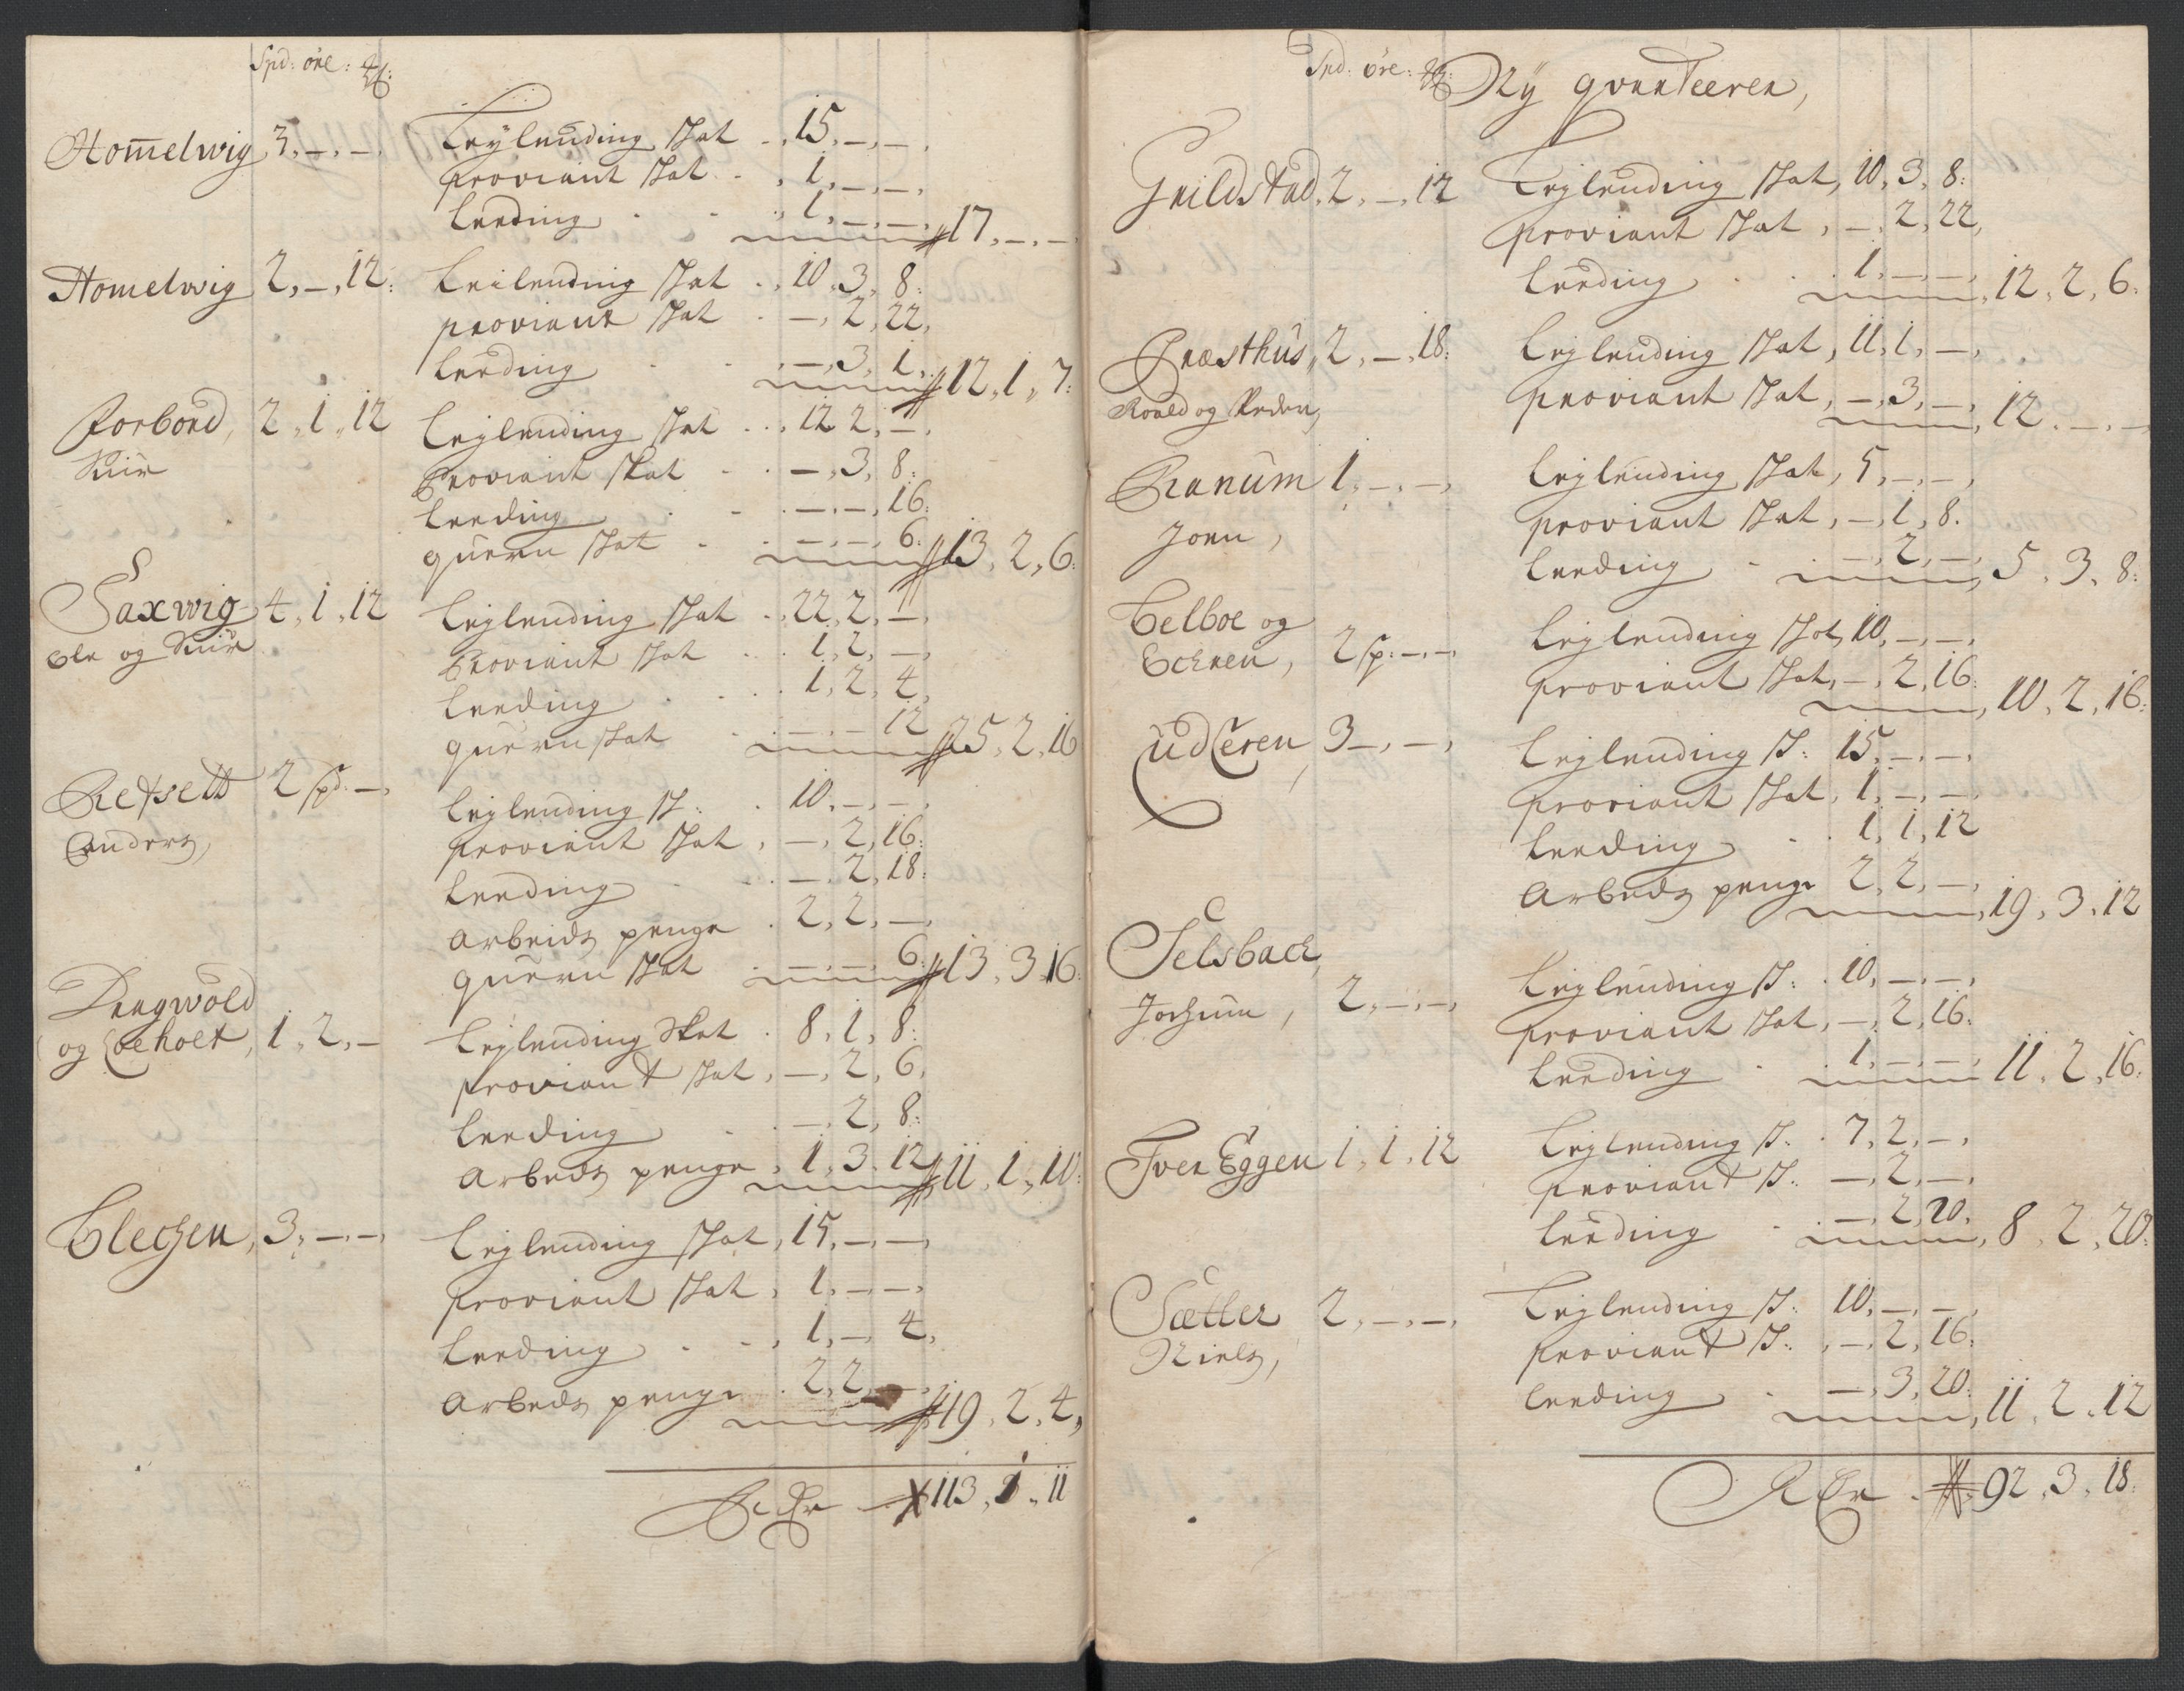 Spd: øre: 
Hom̄elwig 3, –, –, Leylending skat ., 15, –, –,
proviant skat ., 1, –, –,
Leeding ., 1, –, –, 17, –, –
Homelwig 2, –, 12: Leilending skat ., 10, 3, 8:
proviant skat . –, 2, 22,
Leeding . –, 3, 1, 12, 1, 7:
Forbord, 2, 1, 12 Lejlending skat ., 12, 2, –,
Siur Proviant skat . –, 3, 8:
Leeding . –, –, 16:
quern skat . –, –, 6: 13, 2, 6:
Saxwig 4, 1, 12 Lejlending skat ., 22, 2, –,
Ole og Siur Proviant skat . 1, 2, –,
Leeding . 1, 2, 4,
quern skat . –, –, 12 25, 2, 16
Refsett 2 spd: –, Lejlending sk: . 10, –, –,
Anders, proviant skat, –, 2, 16:
Leeding . –, 2, 18:
Arbeids penge . 2, 2, –,
quern skat . –, –, 6: 13, 3, 16:
Dragwold
og Loeholt, 1, 2, – Lejlending Skat . 8, 1, 8:
proviant skat, –, 2, 6,
Leeding . –, 2, 8:
Arbeds penge, 1, 3, 12 11, 1, 10:
Elechen, 3, –, –, Lejlending skat, 15, –, –,
proviant skat, 1, –, –,
Leeding ., 1, –, 4,
Arbeds penge . 2, 2, –, 19, 2, 4,
113, 1, 11
Spd: øre: Ny qvarteeren,
Gnildstad, 2, –, 12 Lejlending skat, 10, 3, 8:
proviant skat, –, 2, 22,
Leeding . 1, –, –, 12, 2, 6:
Præsthus, 2, –, 18: Lejlending skat, 11, 1, –,
Roald og Peder, proviant skat, –, 3, –, 12, –, –
Ranum 1, –, –, Lejlending skat, 5, –, –,
Joen, proviant skat, –, 1, 8.
Leeding . –, 2, –, 5, 3, 8:
Belboe og
Echren, 2 sp: –, –, Lejlending skat, 10, –, –,
proviant skat, –, 2, 16: 10, 2, 16:
Udleren 3 –, –, Lejlending sk: 15, –, –,
proviant skat, 1, –, –,
Leeding . 1, 1, 12
Arbeds penge 2, 2, –, 19, 3, 12
Selsbach,
Jochum, 2, –, –, Lejlending sk: . 10, –, –,
proviant skat, –, 2, 16:
Leeding . 1, –, –, 11, 2, 16:
Iver Eggen 1, 1, 12 Lejlending sk: . 7, 2, –,
proviant sk: –, 2, –,
Leeding . –, 2, 20, 8, 2, 20:
Sætter 2, –, –, Lejlending sk: 10, –, –,
Niels, proviant sk: , –, 2, 16:
Leeding . –, 3, 20: 11, 2, 12
92, 3, 18: